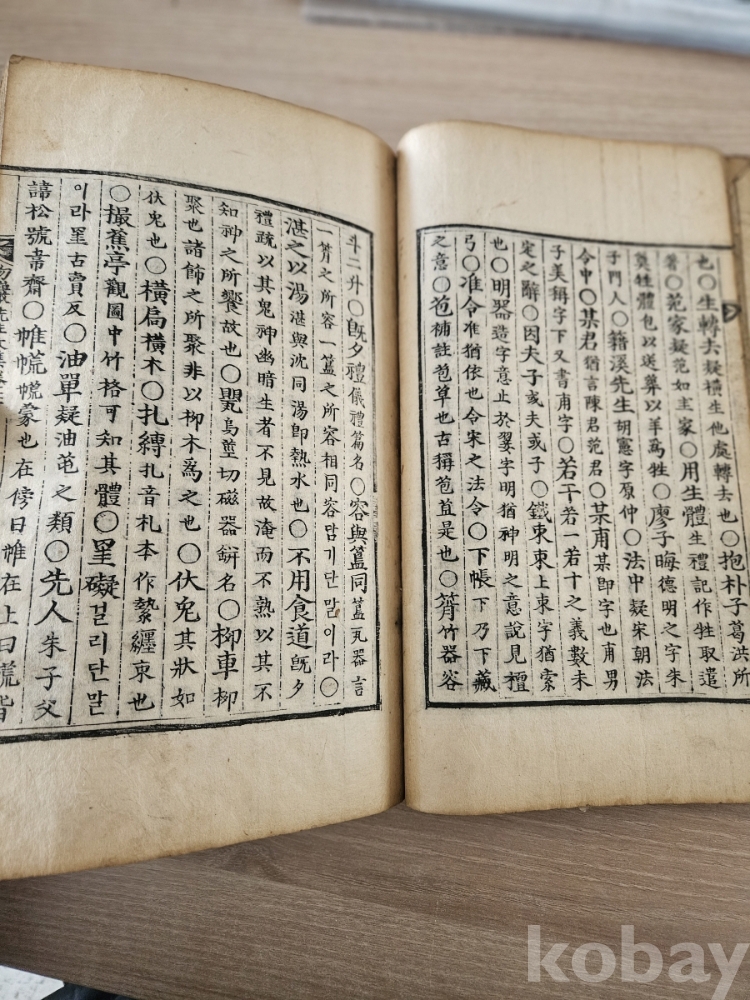 也〇生轉去疑橫生他處轉去也〇抱朴子葛洪所
著〇范家疑范如主家〇用生體生禮記作牲取遣
奠牲體包以送葬以羊爲牲〇廖子晦德明之字朱
子門人〇籍溪先生胡憲字原仲〇法中疑宋朝法
令中〇某君猶言陳君范君〇某甫某卽字也甫男
子美稱字下又書甫字〇若干若一若十之義數未
定之辭〇因夫子或夫或子〇鐵束束上束字猶索
也〇明器造字意止於翣字明猶神明之意說見檀
弓〇准令准猶依也令宋之法令〇下帳下乃下藏
之意〇苞補註苞草也古稱苞苴是也〇筲竹器容
斗二升〇旣夕禮儀禮篇名〇容與簋同簋瓦器言
一筲之所容一簋之所容相同容맘기단말이라〇
湛之以湯湛與沈同湯卽熱水也〇不用食道旣夕
禮疏以其鬼神幽暗生者不見故淹而不熟以其不
知神之所饗故也〇甖烏莖切磁器缾名〇柳車柳
聚也諸飾之所聚非以柳木爲之也〇伏兎其狀如
伏兎也〇橫扃橫木〇扎縛扎音札本作紮纏束也
〇撮蕉亭觀圖中竹格可知其體〇罣礙걸리단말
이라罣古賣反〇油單疑油芚之類〇先人朱子父
諱松號韋齋〇帷㡆㡆蒙也在傍曰帷在上曰㡆皆
先生文集卷
kobay